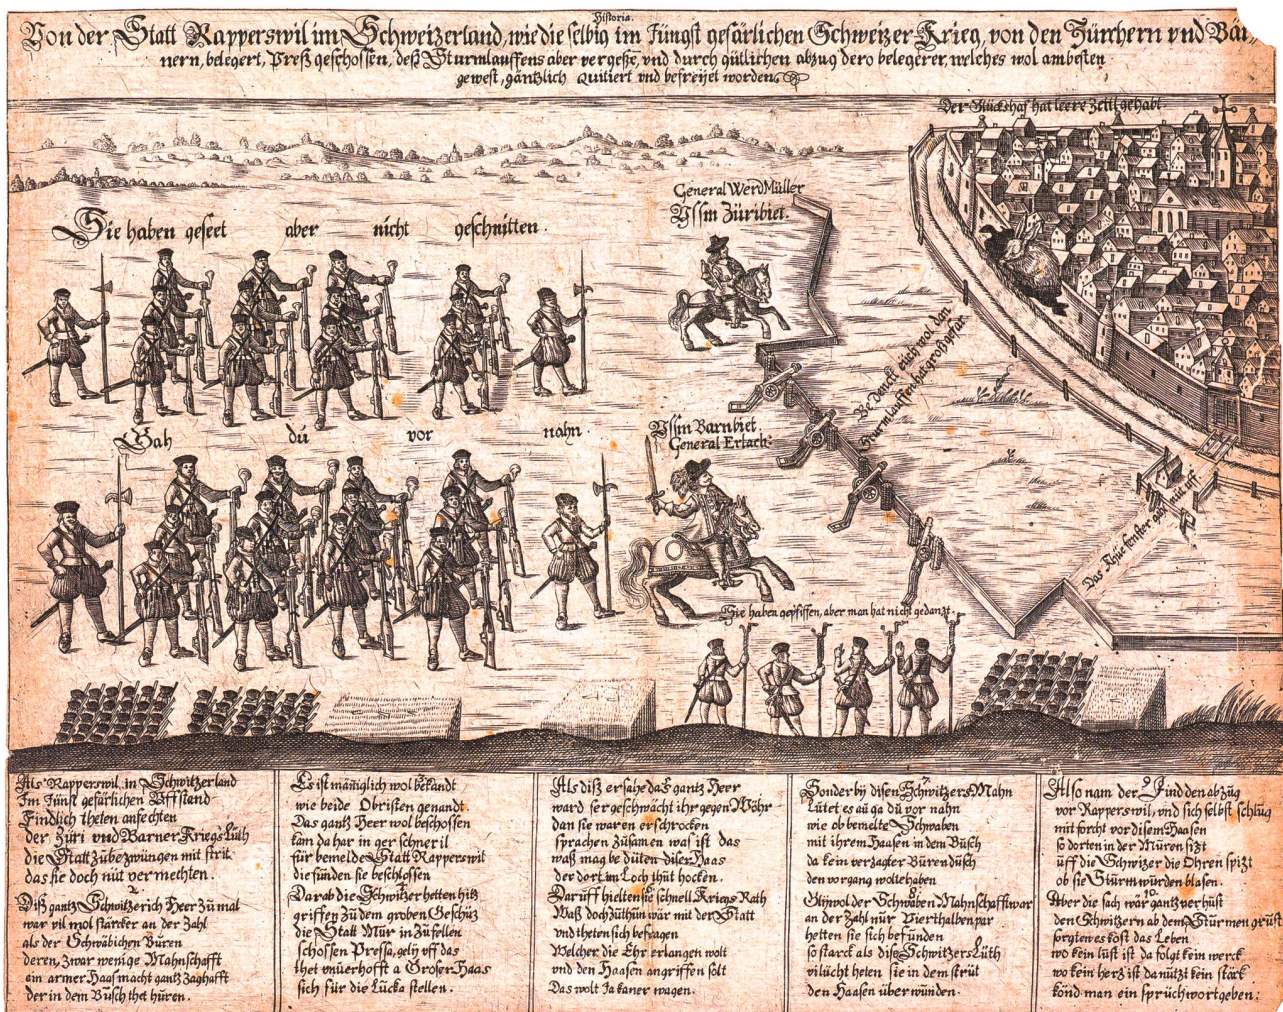 Historia.
Von der Statt Rapperswil im Schweizerland, wie die selbig im Jüngst gefärlichen Schweizer Krieg, von den Zürchern vnd Bär,
nern, belegert, Preß geschossen, deß Sturmlauffens aber vergeße, vnd durch gütlichen abzug dero belegerer, welches wol am besten
gewest, gäntzlich Quitiert vnd befreijet worden.
Der Glückshaf hat leere Zetil gehabt.
General WerdMüller
Vssm Züribiet.
Sie haben geseet aber nicht geschnitten.
Be danckt eüch wol den
Sturmlauffen hat groß gfar
Gah dü vor nahn.
Vssim Barnbiet.
General Erlach:
Das Khüe fenster gaht nüt üff.
Sie haben gepfiffen, aber man hat nicht gedanzt.
Als Rapperswil, in Schwitzerland
Im Jünst gefärlichen Vffstand
Findlich theten anfechten
der Züri vnd Barner Kriegs Lüth
die Statt zübezwüngen mit strit.
das sie doch nüt vermechten.
2.
Diß gantz Schwitzerich Heer Zü mal
war vil mol stärcker an der Zahl
als der Schwäbichen Büren
deren, zwar wenige Mahnschafft
ein armer Haas macht gantz Zaghafft
der in dem Büsch thet hüren.
Es ist mäniglich wol bekandt
wie beide Obristen genandt.
Das gantz Heer wol beschossen
kam da har in gar schneril
für bemelde Statt Rapperswil
die sünden sie beschlossen
4
Darab die Schwitzer hetten hitz
griffen zü dem groben Geschüz
die Statt Mür in Zü fellen
schossen Pressa, gely off das
thet vnüerhofft a Groser Haas
sich für die Lücka stellen.
Als diß ersahe daß gantz Heer
ward ser geschwächt ihr gegen Wöhr
dan sie waren erschrocken
sprachen Züsamen was ist das
waß mag be düten diser Haas
der dort im Loch thüt hocken.
Darüff hielten sie schnell Kriegs Rath
Waß doch Züthün wär mit der Statt
vnd theten sich befragen
Welcher die Ehr erlangen wolt
vnd den Haasen angriffen solt
Das wolt Ja kaner wagen.
7
Sonder by disen Schwitzers Mahn
Lütet es aü ga dü vor nahn
wie ob bemelte Schwaben
mit ihrem Haasen in dem Büsch
da kein verzagter Büren düsch
den vorgang wolte haben
8
Glijwol der Schwäben Mahnschafft war
an der Zahl nür Vierthalben par
hetten sie sich befünden
so starck als dise Schwitzers Lüth
vilücht heten sie in dem strüt
den Haasen überwünden.
9
Also nam der Find den abzüg
vor Rapperswil, vnd sich selbst schlüg
mit forcht vor disem Haasen
so dorten in der Müren sizt
üff die Schwizer die Ohren spizt
ob sie Stürm würden blasen.
10.
Aber die sach wär gantz verhüst
den Schwitzern ab dem Stürmen grüst
sorgten es köst das Leben
wo kein lüst ist da folgt kein werck
wo kein herz ist da nützt kein stärk
könd man ein sprüchwort geben.